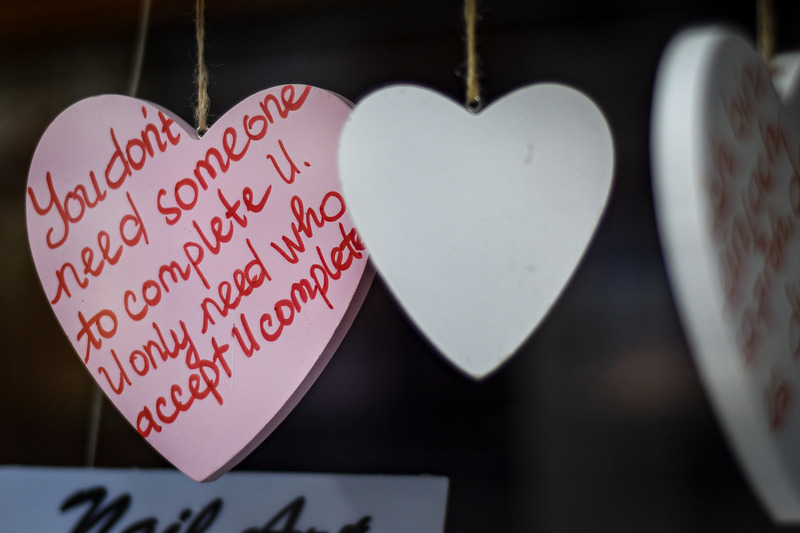 You don't
need someone
to complete U.
U only need who
accept U complete
Nail Art